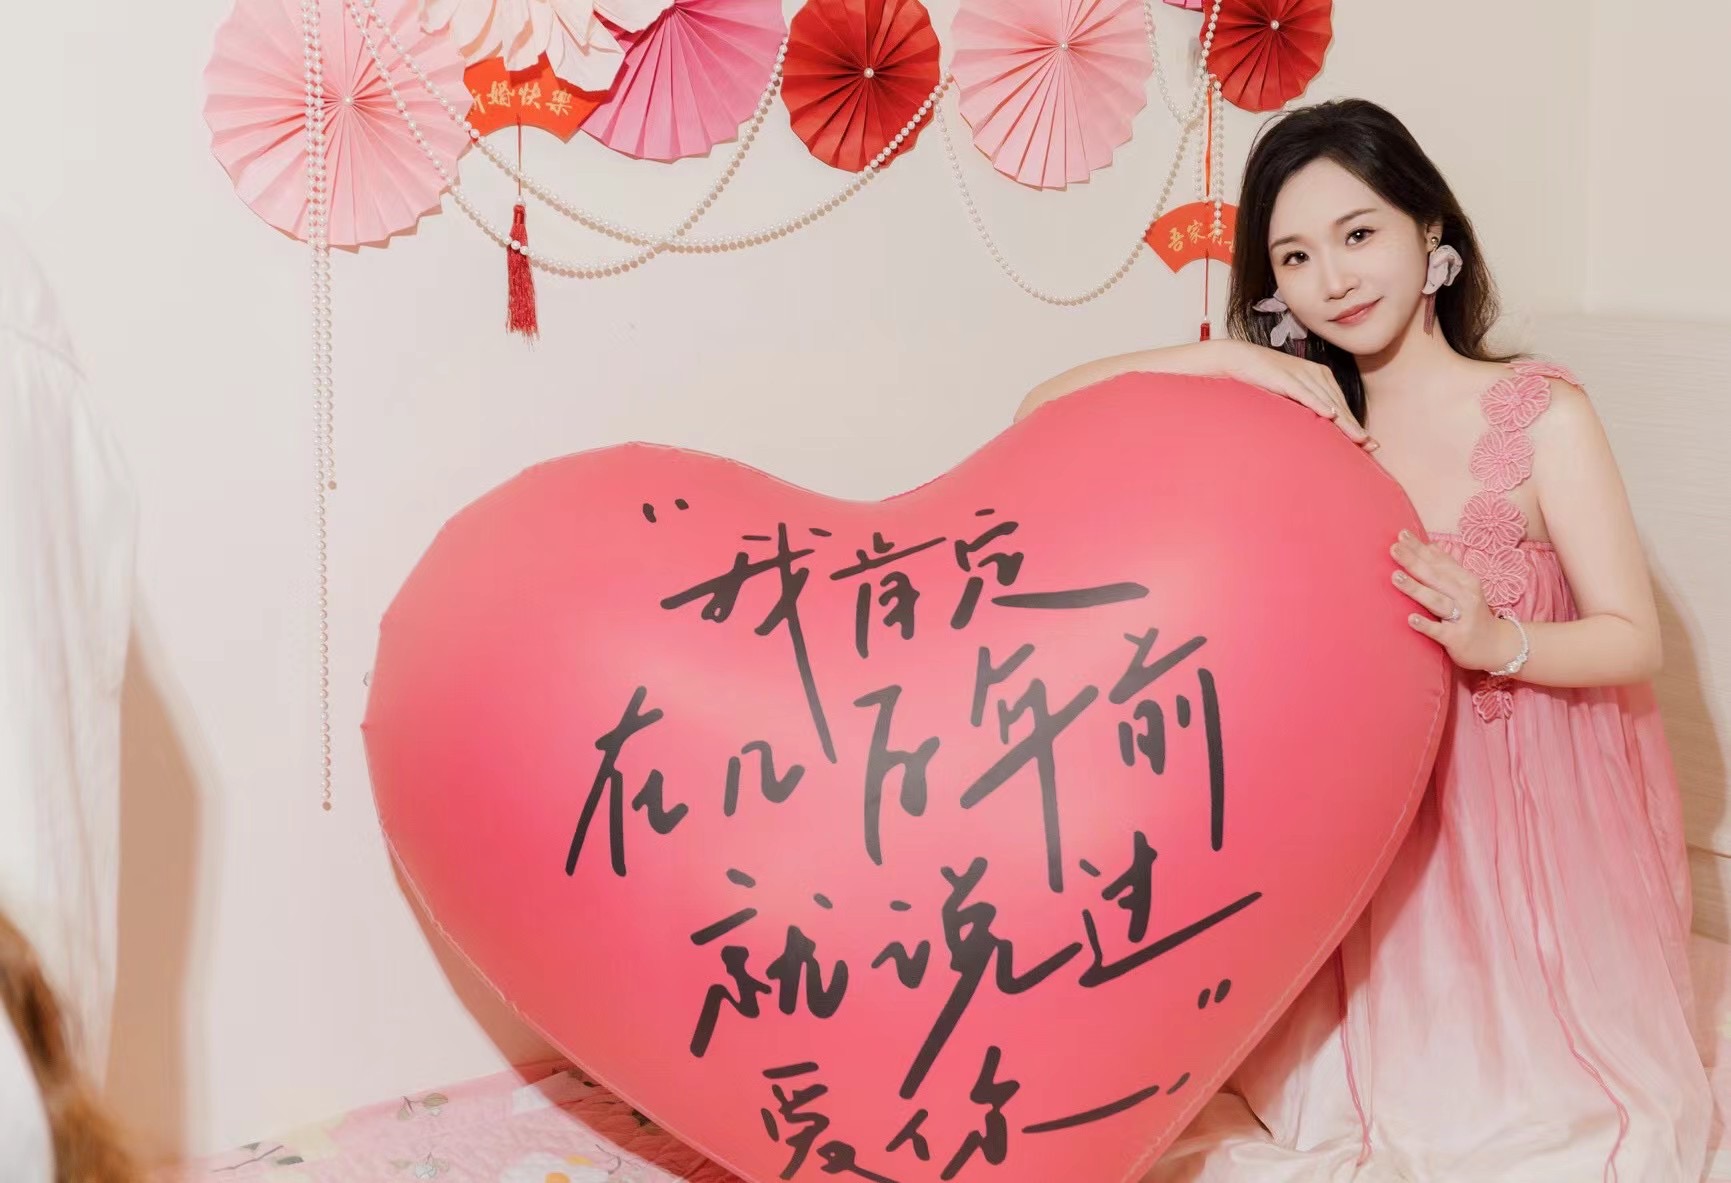 新婚快樂
吾家有
"我肯定
在几百年前
就说过
爱你"